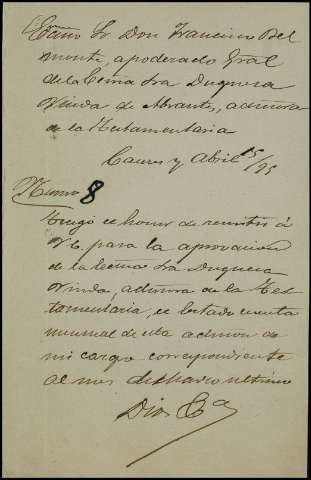 Excmo Sr Don Francisco Bel
monte, apoderado Gral
de la Excma Sra Duquesa
Viuda de Abrantes, admora
de la Testamentaria
Caceres y Abril 15/95
Numo 8
Tengo el honor de remitir á
V.E. para la aprovacion
de la Excma Sra Duquesa
Viuda, admora de la Tes
tamentaria, el estado cuenta
mensual de esta admon de
mi cargo correspondiente
al mes de Marzo ultimo
Dios &a